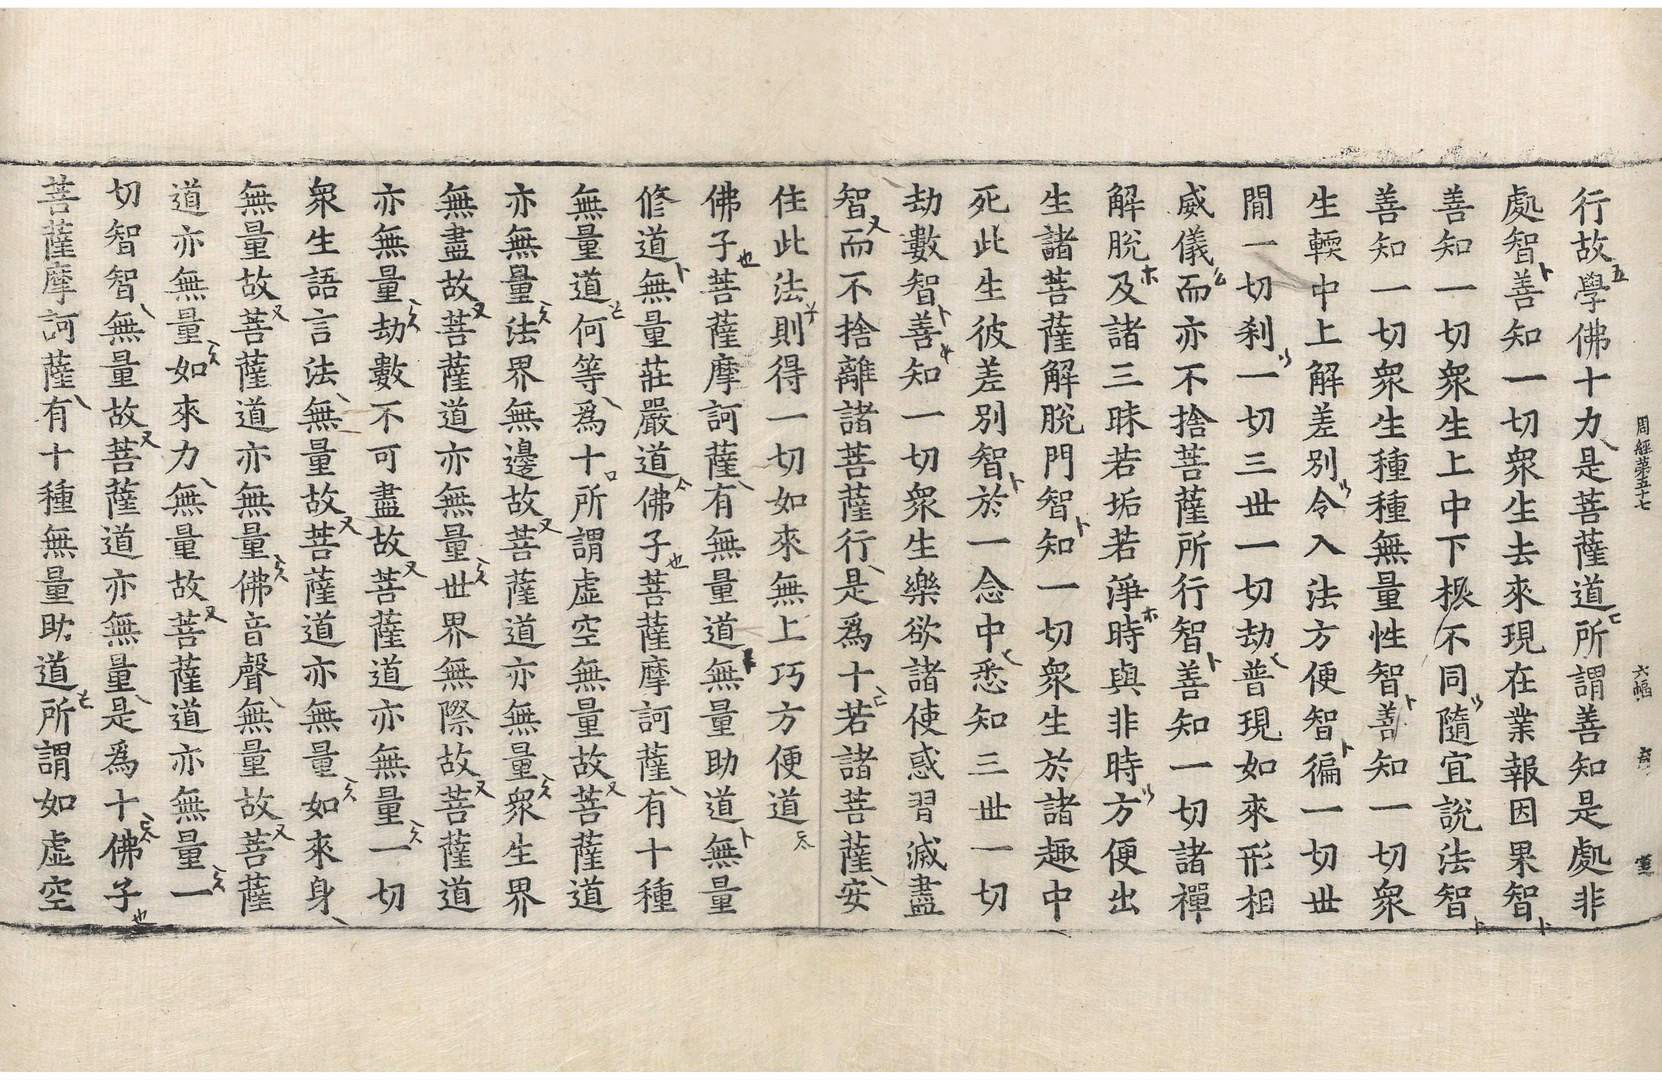 周經第五十七　六幅
行故學佛十力是菩薩道所謂善知是處非
處智善知一切衆生去來現在業報因果智
善知一切衆生上中下根不同隨宜說法智
善知一切衆生種種無量性智善知一切衆
生輭中上解差別令入法方便智徧一切世
閒一切刹一切三世一切劫普現如來形相
威儀而亦不捨菩薩所行智善知一切諸禪
解脫及諸三昧若垢若淨時與非時方便出
生諸菩薩解脫門智知一切衆生於諸趣中
死此生彼差別智於一念中悉知三世一切
劫數智善知一切衆生樂欲諸使惑習滅盡
智而不捨離諸菩薩行是爲十若諸菩薩安
住此法則得一切如來無上巧方便道
佛子菩薩摩訶薩有無量道無量助道無量
修道無量莊嚴道佛子菩薩摩訶薩有十種
無量道何等爲十所謂虛空無量故菩薩道
亦無量法界無邊故菩薩道亦無量衆生界
無盡故菩薩道亦無量世界無際故菩薩道
亦無量劫數不可盡故菩薩道亦無量一切
衆生語言法無量故菩薩道亦無量如來身
無量故菩薩道亦無量佛音聲無量故菩薩
道亦無量如來力無量故菩薩道亦無量一
切智智無量故菩薩道亦無量是爲十佛子
菩薩摩訶薩有十種無量助道所謂如虛空